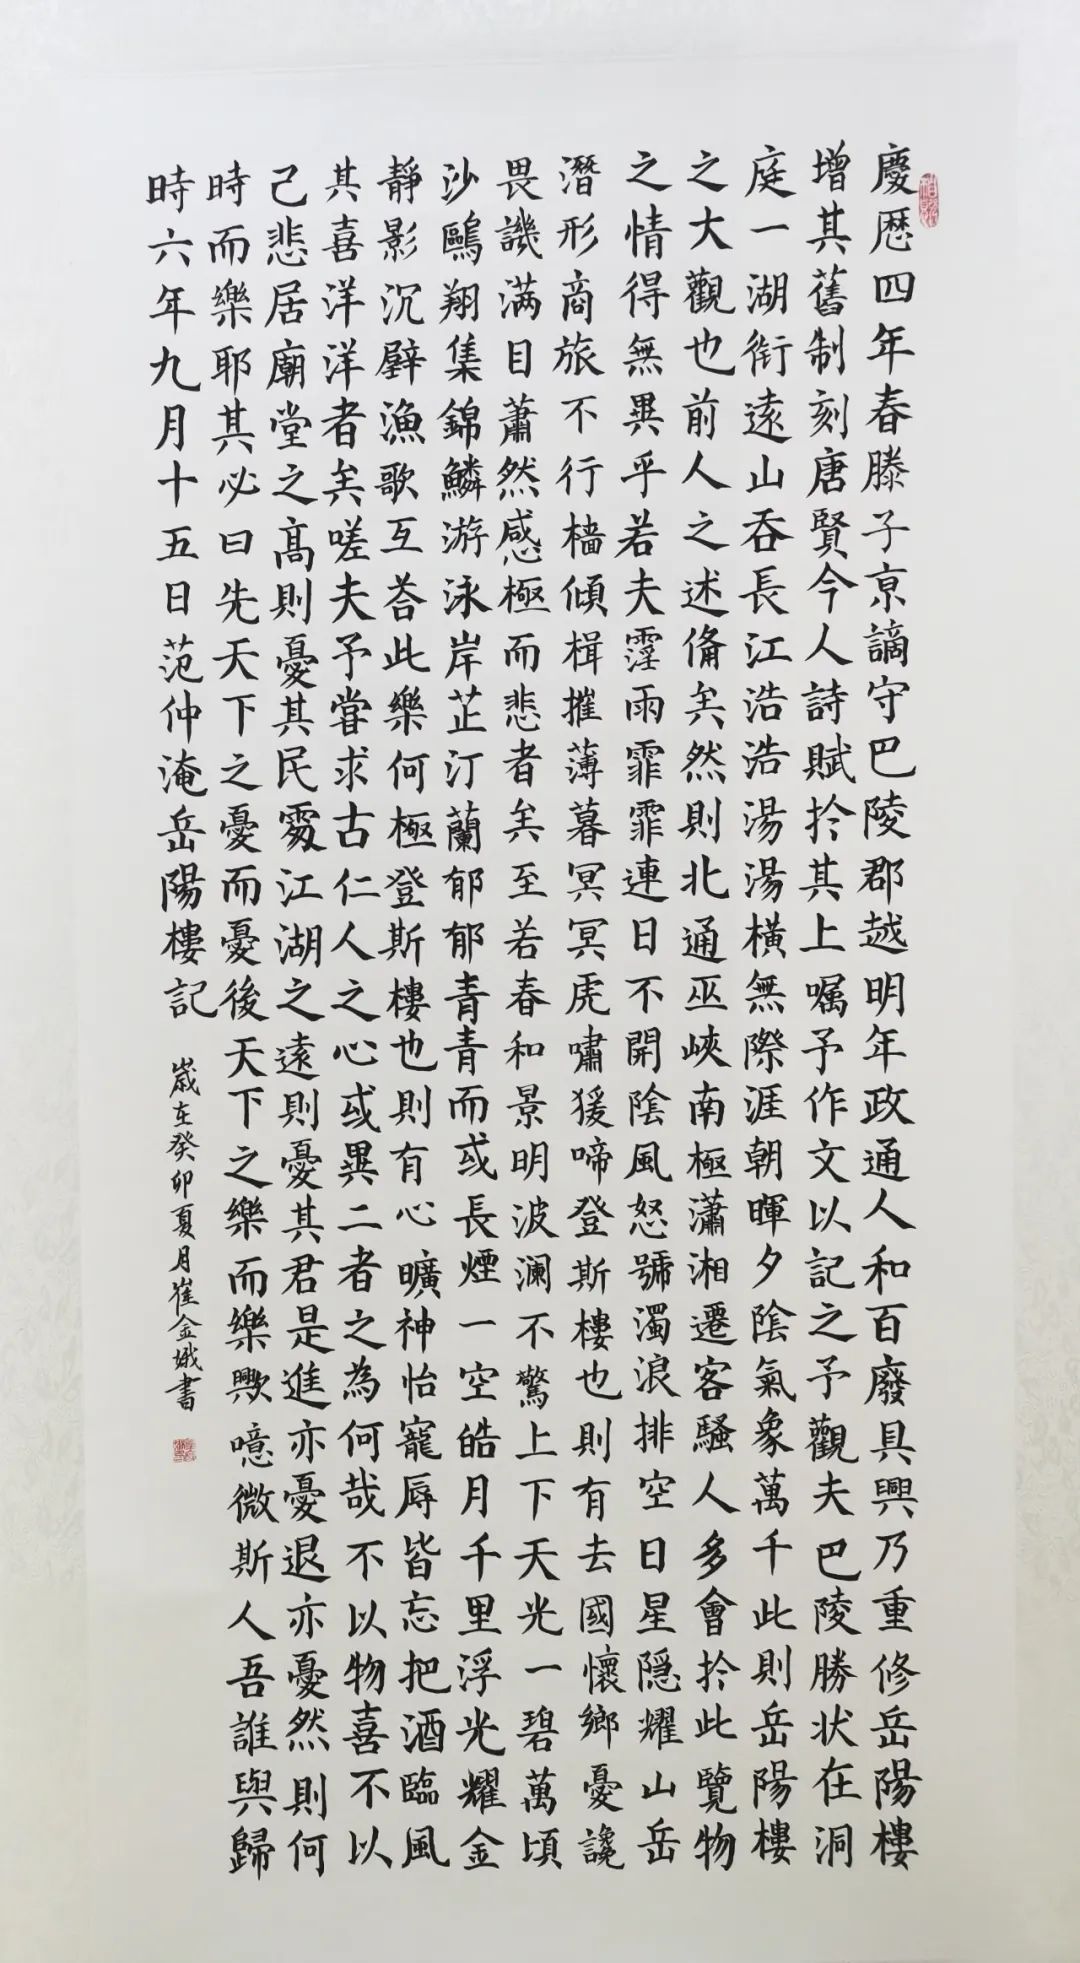 慶歷四年春滕子京謫守巴陵郡越明年政通人和百廢具興乃重修岳陽樓
增其舊制刻唐賢今人詩賦扵其上嘱予作文以記之予觀夫巴陵勝状在洞
庭一湖衔遠山吞長江浩浩湯湯橫無際涯朝暉夕陰氣象萬千此則岳陽樓
之大觀也前人之述俻矣然則北通巫峽南極瀟湘遷客騷人多會扵此覽物
之情得無異乎若夫霪雨霏霏連日不開陰風怒號濁浪排空日星隠耀山岳
潛形商旅不行檣傾楫摧薄暮冥冥虎嘯猨啼登斯樓也則有去國懷鄉憂讒
畏譏满目蕭然感極而悲者矣至若春和景明波澜不驚上下天光一碧萬頃
沙鷗翔集錦鱗游泳岸芷汀蘭郁郁青青而或長煙一空皓月千里浮光耀金
靜影沉璧漁歌互荅此樂何極登斯樓也則有心曠神怡寵辱皆忘把酒臨風
其喜洋洋者矣嗟夫予甞求古仁人之心或異二者之為何哉不以物喜不以
己悲居廟堂之髙則憂其民處江湖之遠則憂其君是進亦憂退亦憂然則何
時而樂耶其必曰先天下之憂而憂後天下之樂而樂歟噫微斯人吾誰與歸
時六年九月十五日范仲淹岳陽樓記
歲在癸卯夏月崔金娥書